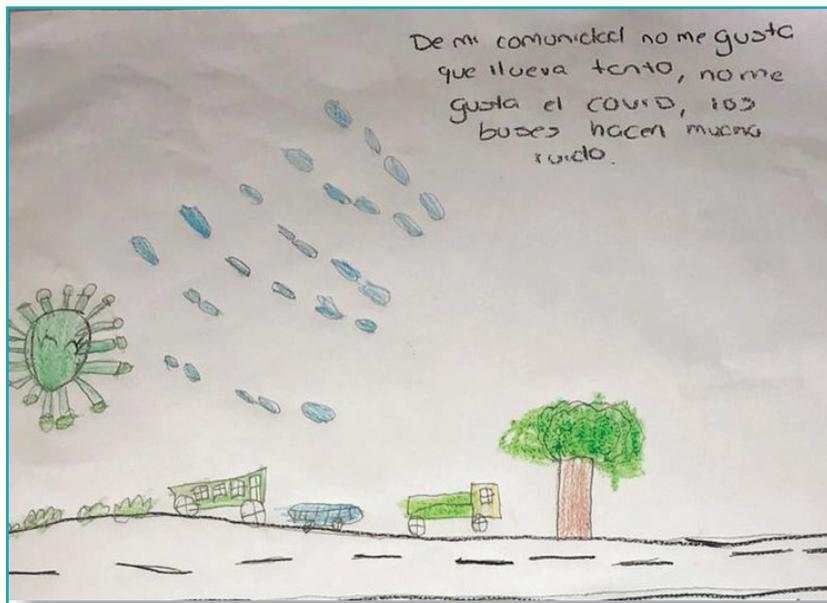 De mi comunidad no me gusta
que llueva tanto, no me
gusta el covid, los
buses hacen mucho
ruido.